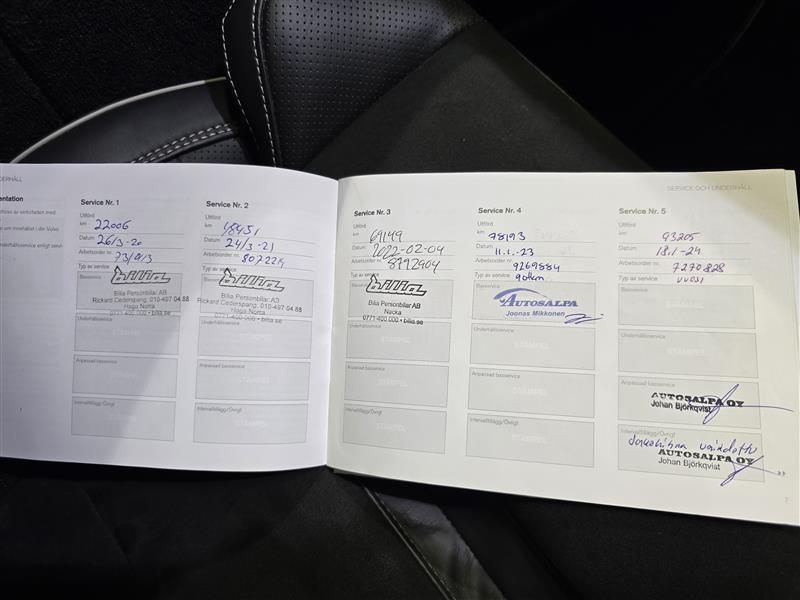 SERVICE OCH UNDERHÅLL
Service Nr. 1
Utförd
km 22006
Datum 26/3-20
Arbetsorder nr
Typ av service
Basservice
bilia
Bilia Personbilar AB
Rickard Cederspang, 010-497 04 88
Haga Norra
0771-400 000 • bilia.se
Underhållsservice
Anpassad basservice
Intervalltillägg/Övrigt
Service Nr. 2
Utförd
km 48451
Datum 24/3-21
Arbetsorder nr
Typ av service
bilia
Bilia Personbilar AB
Rickard Cederspang, 010-497 04 88
Haga Norra
0771-400 000 • bilia.se
Underhållsservice
Anpassad basservice
Intervalltillägg/Övrigt
Service Nr. 3
Utförd
km 69149
Datum 2022-02-04
Arbetsorder nr 8792904
Typ av service
bilia
Bilia Personbilar AB
Nacka
0771-400 000 • bilia.se
Underhållsservice
Anpassad basservice
STÄMPEL
Intervalltillägg/Övrigt
STÄMPEL
Service Nr. 4
Utförd
km 78193
Datum 11.1.-23
Arbetsorder nr 9269884
Typ av service 90tkm
Basservice
AUTOSALPA
Joonas Mikkonen
Underhållsservice
STÄMPEL
Anpassad basservice
STÄMPEL
Intervalltillägg/Övrigt
STÄMPEL
Service Nr. 5
Utförd
km 93205
Datum 18.1-24
Arbetsorder nr 7270828
Typ av service
Basservice
STÄMPEL
Underhållsservice
STÄMPEL
Anpassad basservice
AUTOSALPA OY
Johan Björkqvist
Intervalltillägg/Övrigt
Jakohihna vaihdettu
AUTOSALPA OY
Johan Björkqvist
7